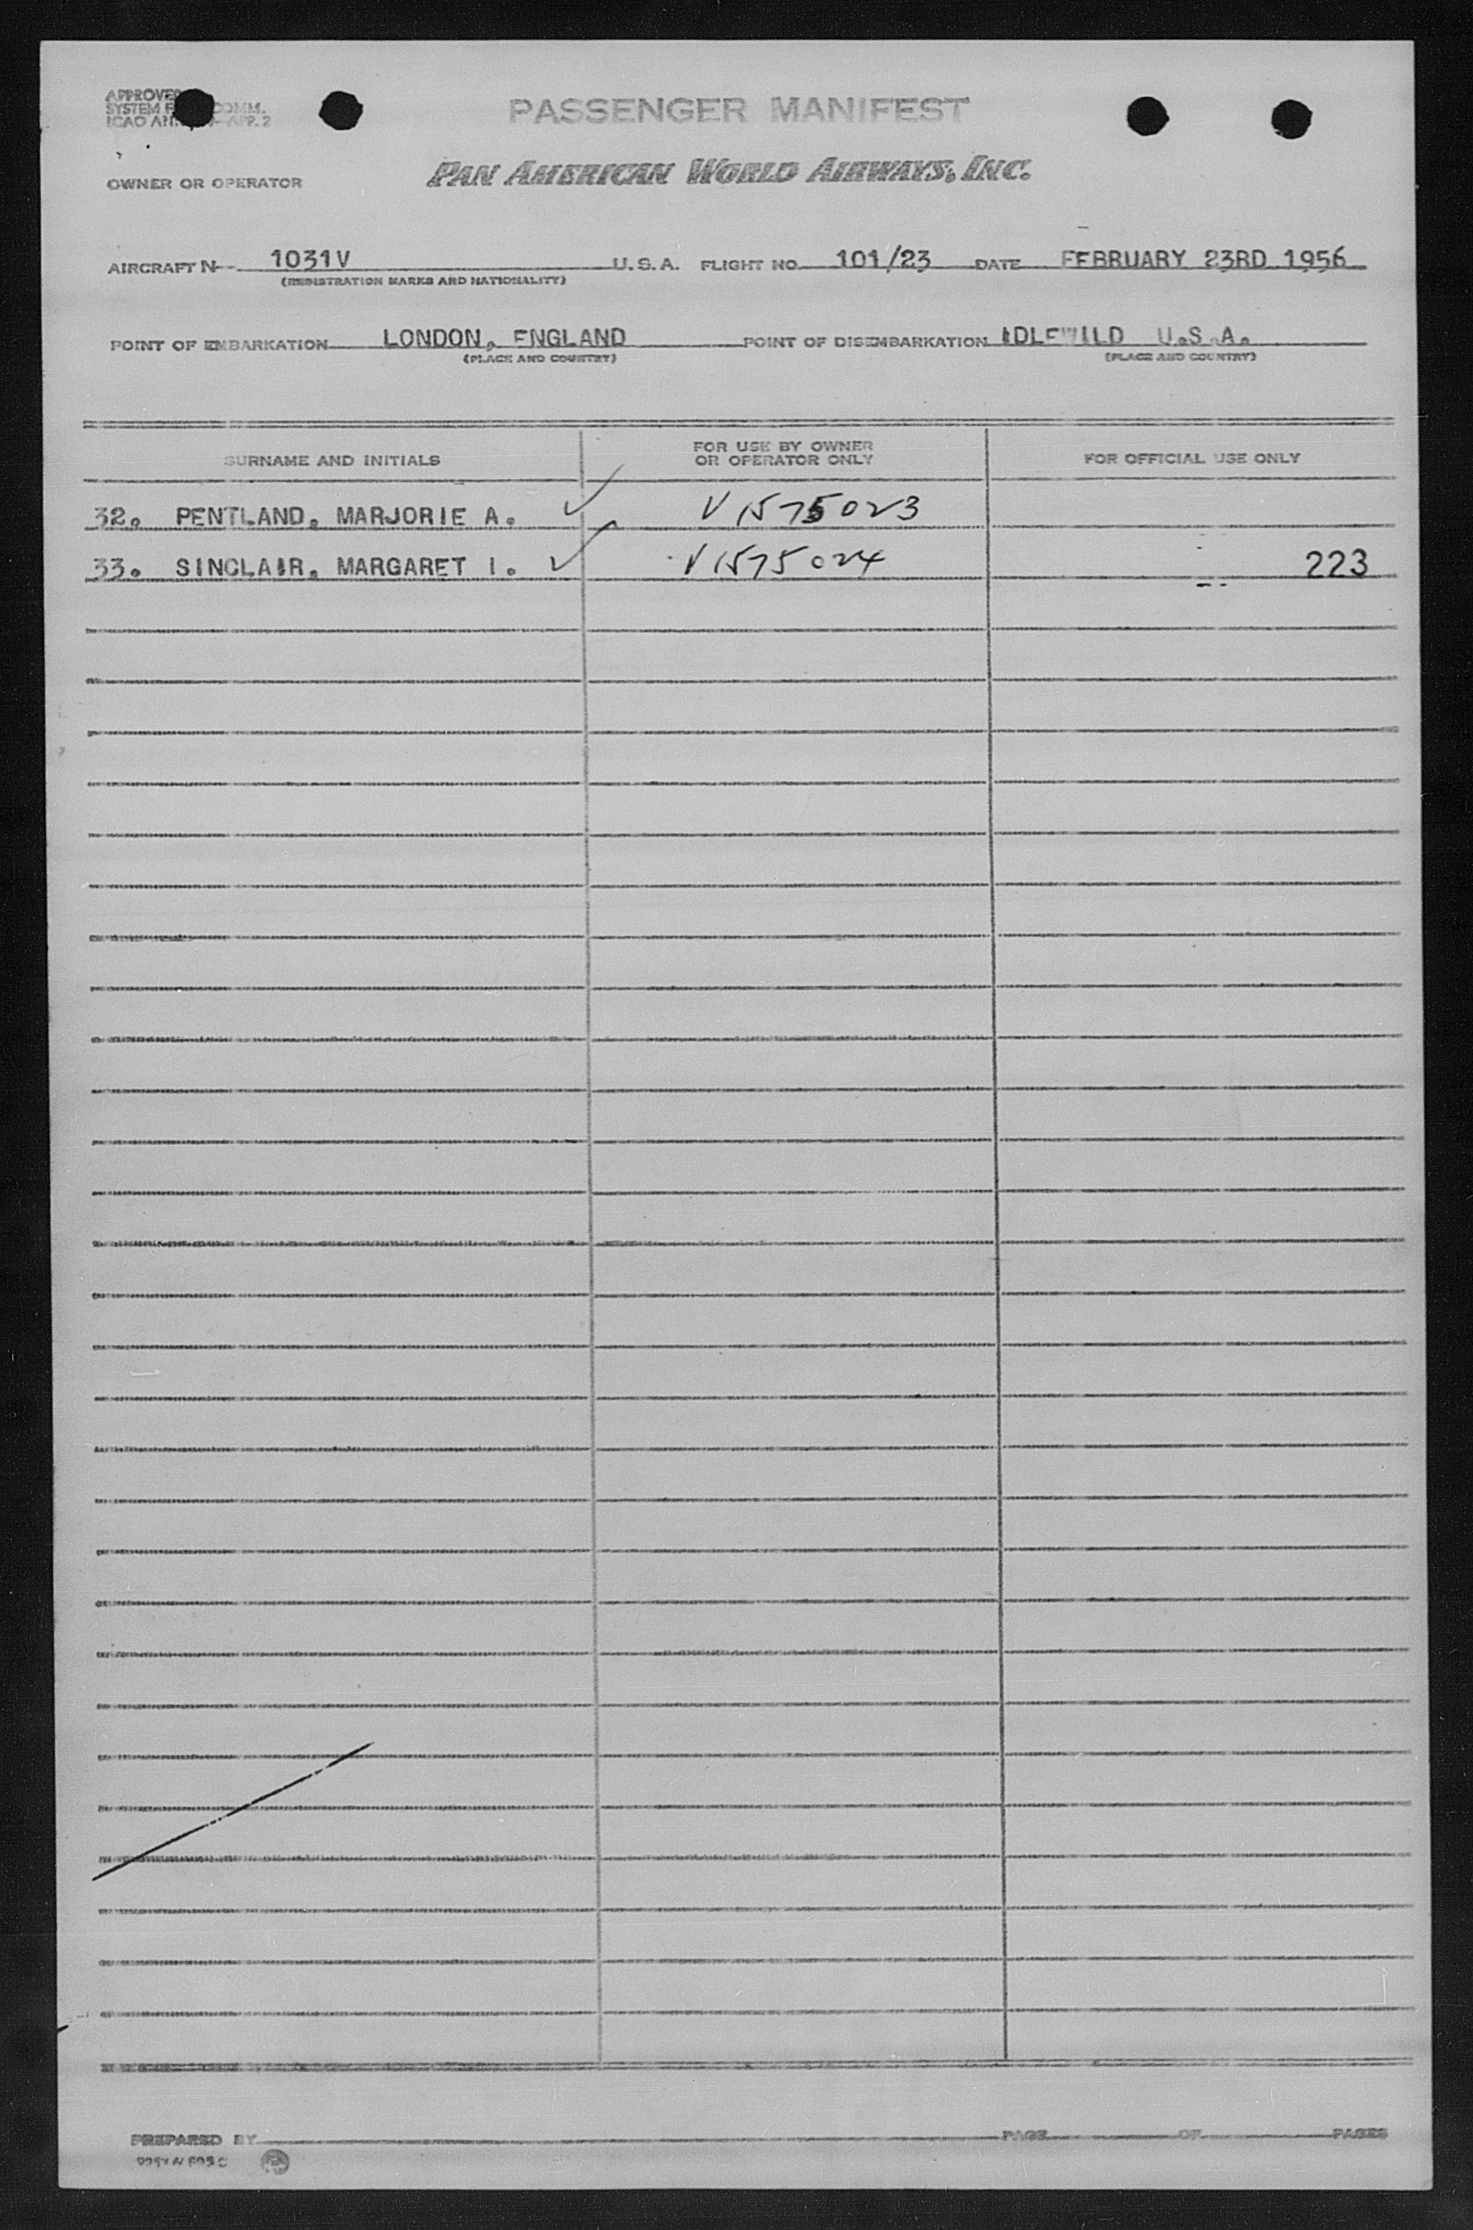 APPROVED
SYSTEM F COMM.
ICAO AN. APP. 2
PASSENGER MANIFEST
OWNER OR OPERATOR PAN AMERICAN WORLD AIRWAYS, INC.
AIRCRAFT N- 1031V U.S.A. FLIGHT NO. 101/23 DATE FEBRUARY 23RD 1956
(REGISTRATION MARKS AND NATIONALITY)
POINT OF EMBARKATION LONDON, ENGLAND POINT OF DISEMBARKATION IDLEWILD U.S.A.
(PLACE AND COUNTRY) (PLACE AND COUNTRY)
SURNAME AND INITIALS FOR USE BY OWNER OR OPERATOR ONLY FOR OFFICIAL USE ONLY
32. PENTLAND, MARJORIE A. ✓ V1575023
33. SINCLAIR, MARGARET I. ✓ V1575024 223
PREPARED BY PAGE OF PAGES